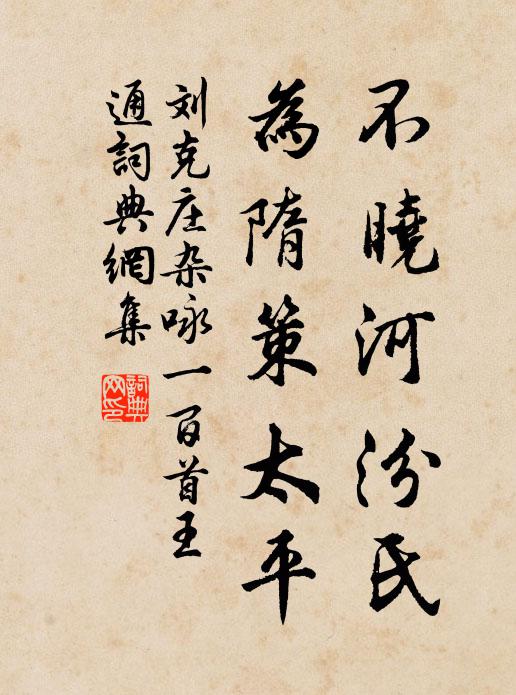 不曉河汾氏
為隋策太平
刘克庄杂咏一百首王
通詞典網集
詞典
网印